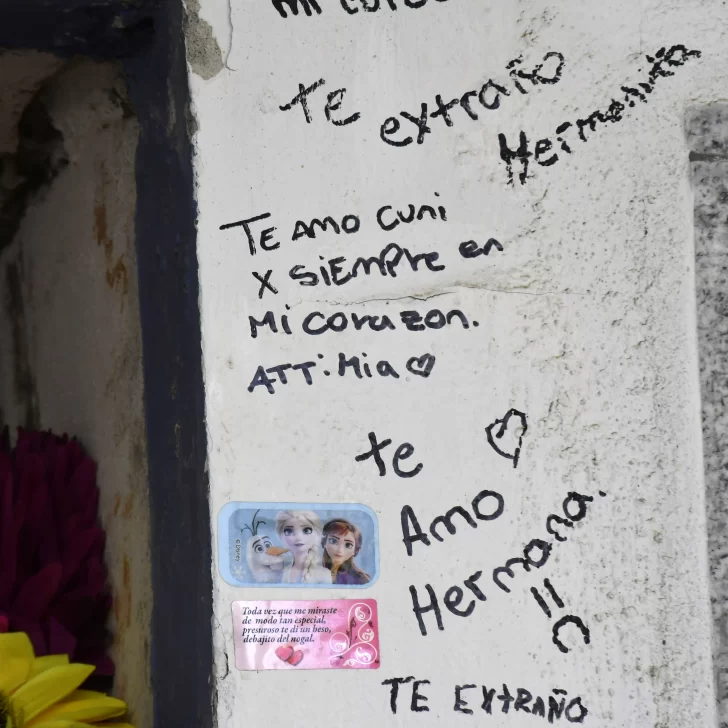 te
extraño
Hermanita
TE AMO CUNI
X SIEMPRE en
Mi corazon.
ATT: Mia ♡
te ♡
Amo
Hermana.
=C
Toda vez que me miraste
de modo tan especial,
presuroso te di un beso,
debajito del nogal.
TE EXTRAÑO